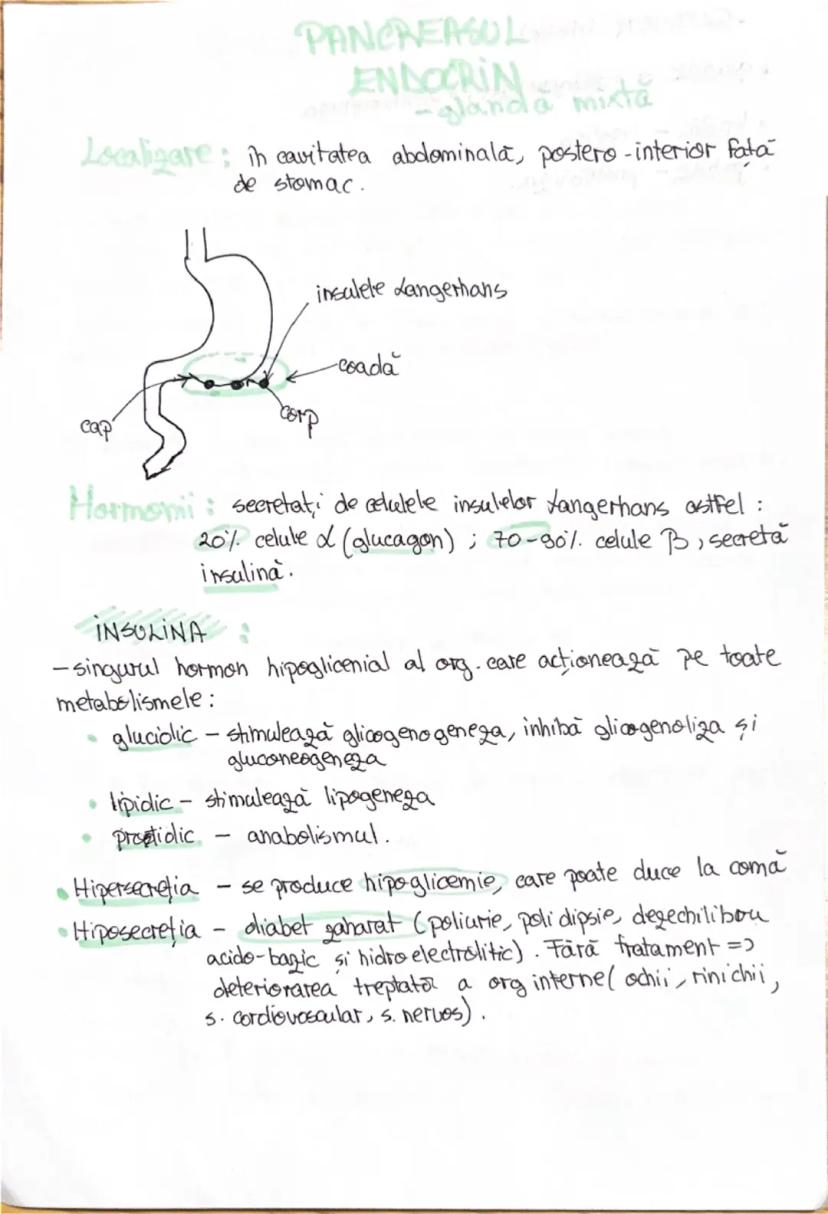 PANCREASUL
ENDOCRIN
- glandă mixtă
Localizare : în cavitatea abdominală, postero-interior față
de stomac.
insulele Langerhans
coadă
cap
corp
Hormonii : secretați de celulele insulelor Langerhans astfel :
20% celule α (glucagon) ; 70-90% celule β, secretă
insulină.
INSULINA :
- singurul hormon hipoglicenial al org. care acționează pe toate
metabolismele :
• glucidic - stimulează glicogenogeneza, inhibă glicogenoliza și
gluconeogeneza
• lipidic - stimulează lipogeneza
• proteidic - anabolismul.
• Hipersecreția - se produce hipoglicemie, care poate duce la comă
• Hiposecreția - diabet zaharat (poliurie, polidipsie, dezechilibru
acido-bazic și hidroelectrolitic). Fără tratament =>
deteriorarea treptată a org interne ( ochii, rinichii,
s. cardiovascular, s. nervos).